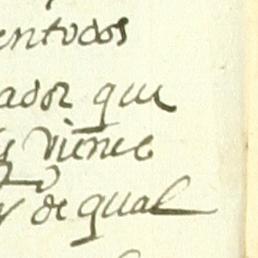 entodos
ador que
viene
y de qual